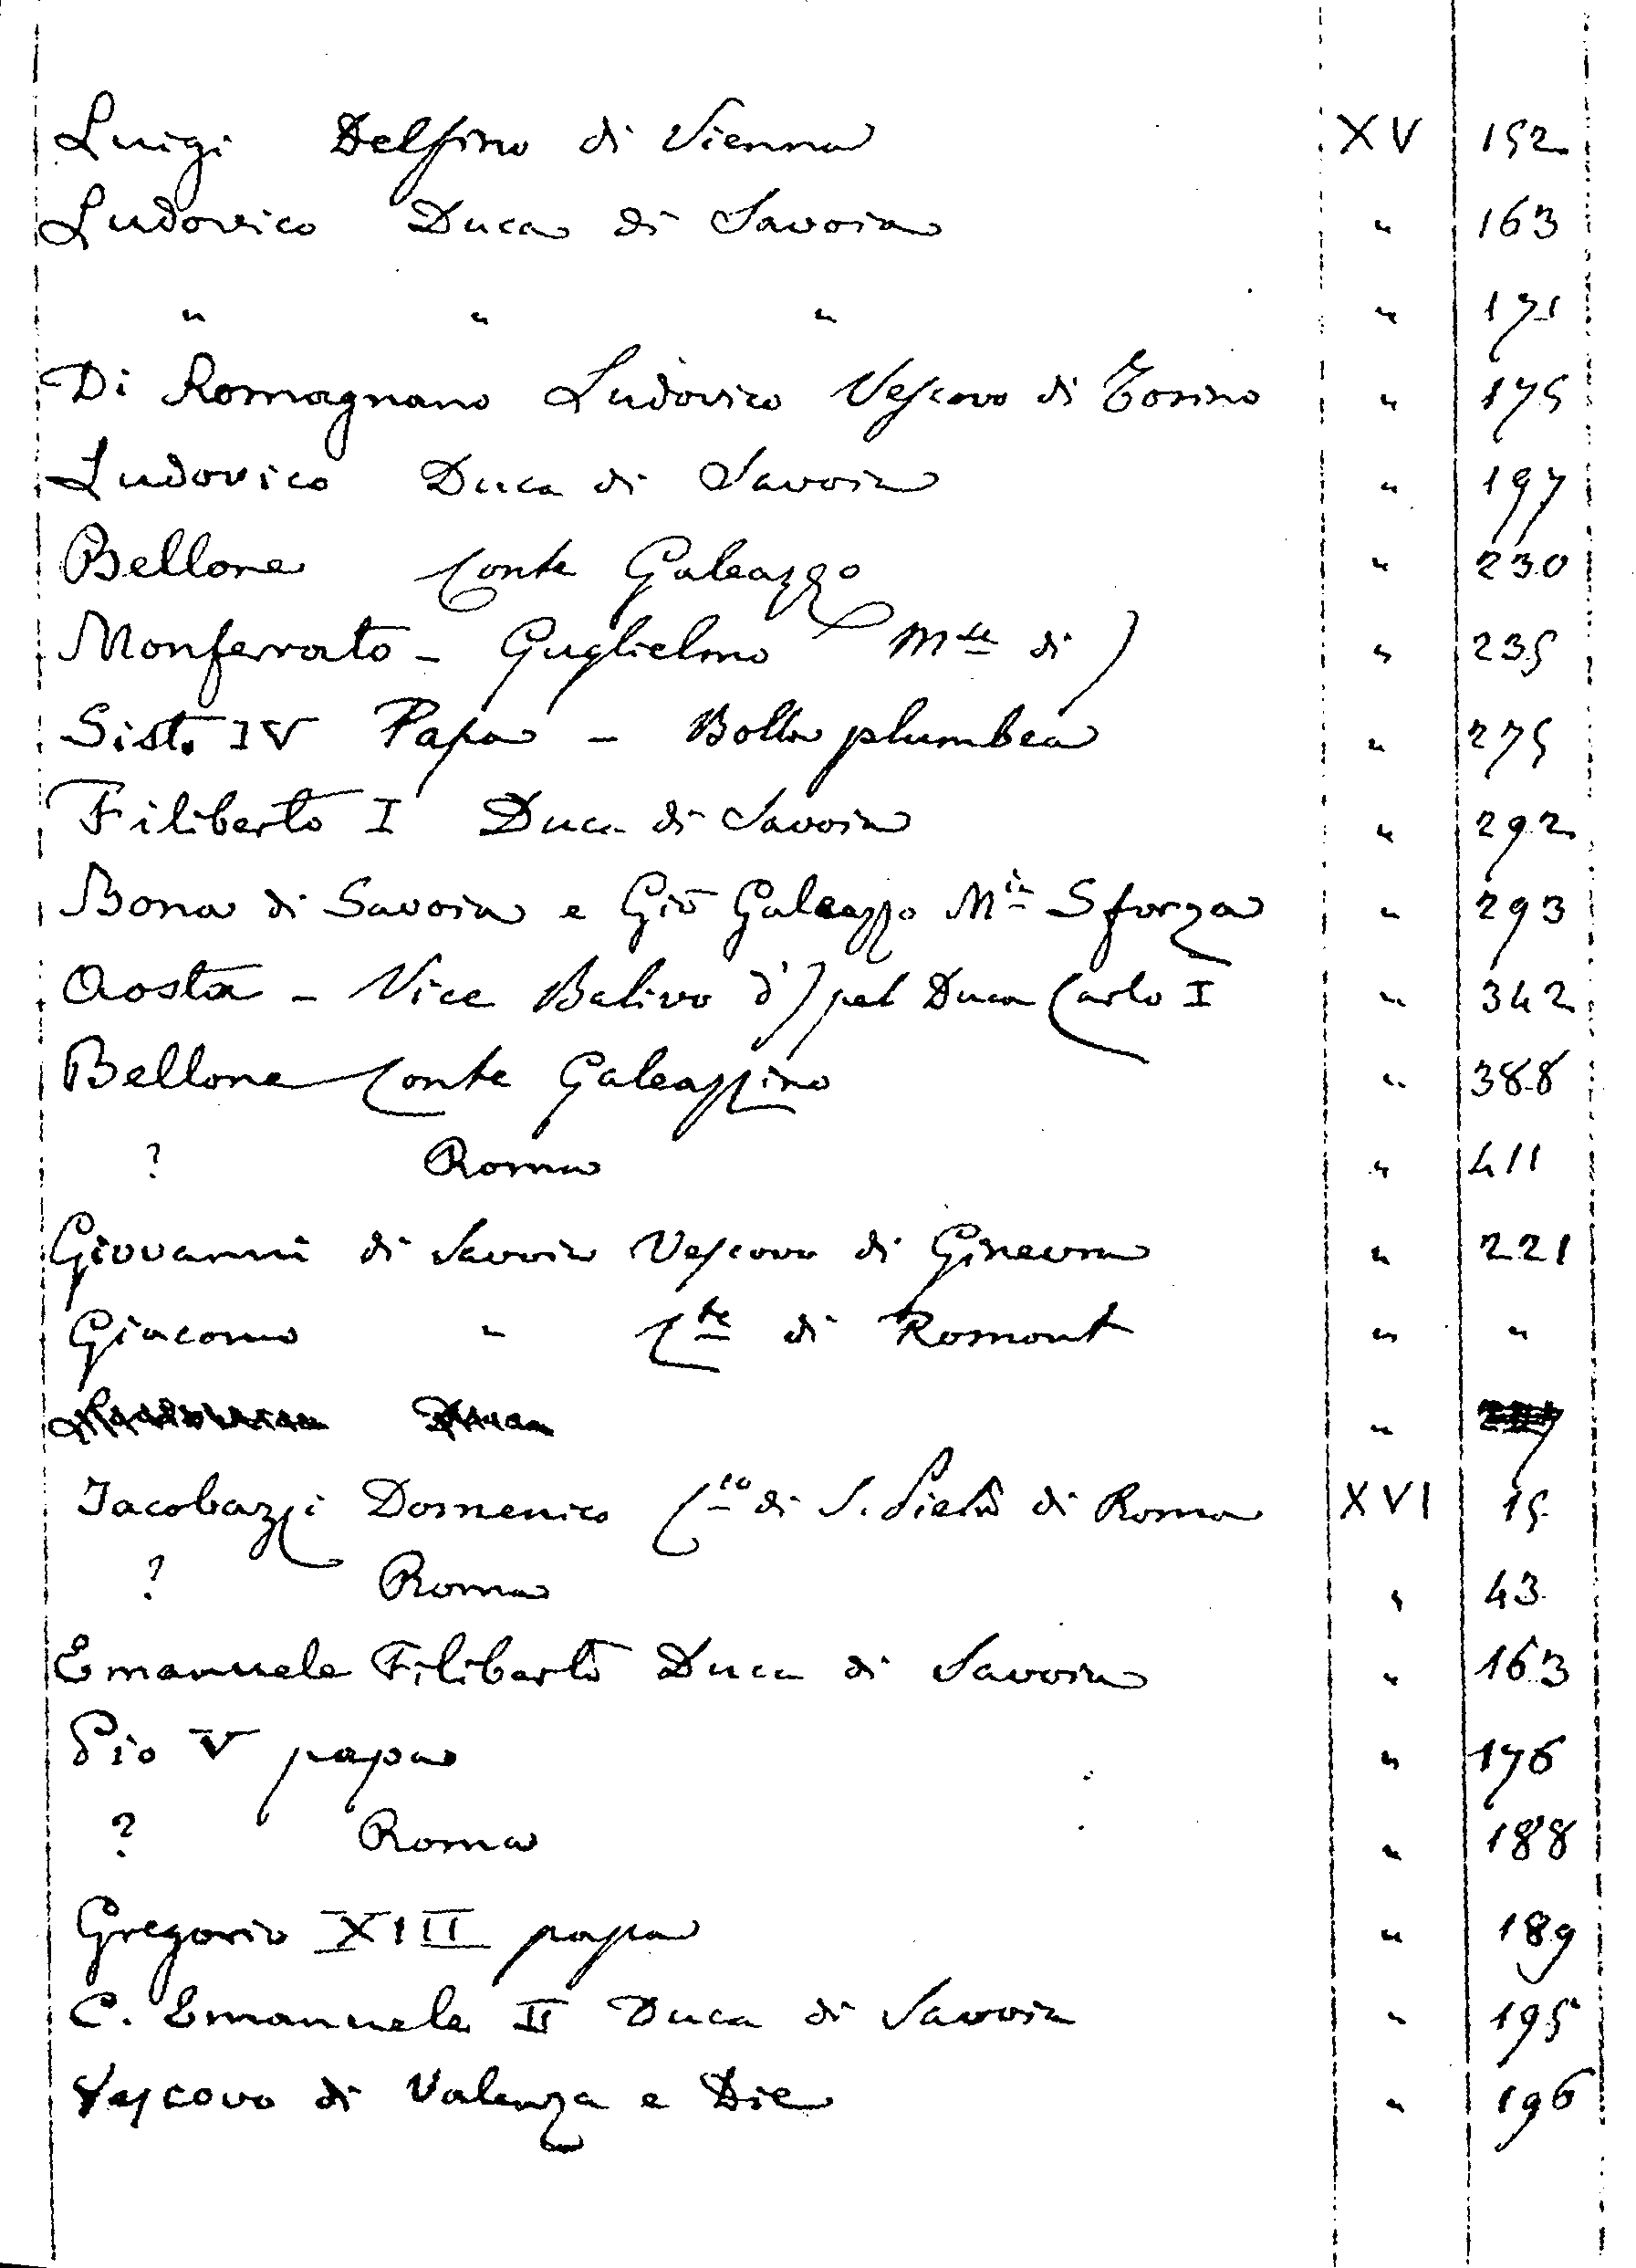 Luigi Delfino di Vienna XV 152
Ludovico Duca di Savoia " 163
" " " " 171
Di Romagnano Ludovico Vescovo di Torino " 175
Ludovico Duca di Savoia " 197
Bellone Conte Galeazzo " 230
Monferrato - Guglielmo Mse di) " 235
Sist. IV Papa - Bolla plumbea " 275
Filiberto I Duca di Savoia " 292
Bona di Savoia e Gio Galeazzo Mia Sforza " 293
Aosta - Vice Balivo d') pel Duca Carlo I " 342
Bellone Conte Galeazzino " 388
? Roma " 411
Giovanni di Savoia Vescovo di Ginevra " 221
Giacomo " Cte di Romont " "
"
Jacobazzi Domenico Cco di S. Pietro di Roma XVI 15
? Roma " 43
Emanuele Filiberto Duca di Savoia " 163
Pio V papa " 176
? Roma " 188
Gregorio XIII papa " 189
C. Emanuele II Duca di Savoia " 195
Vescovo di Valenza e Die " 196